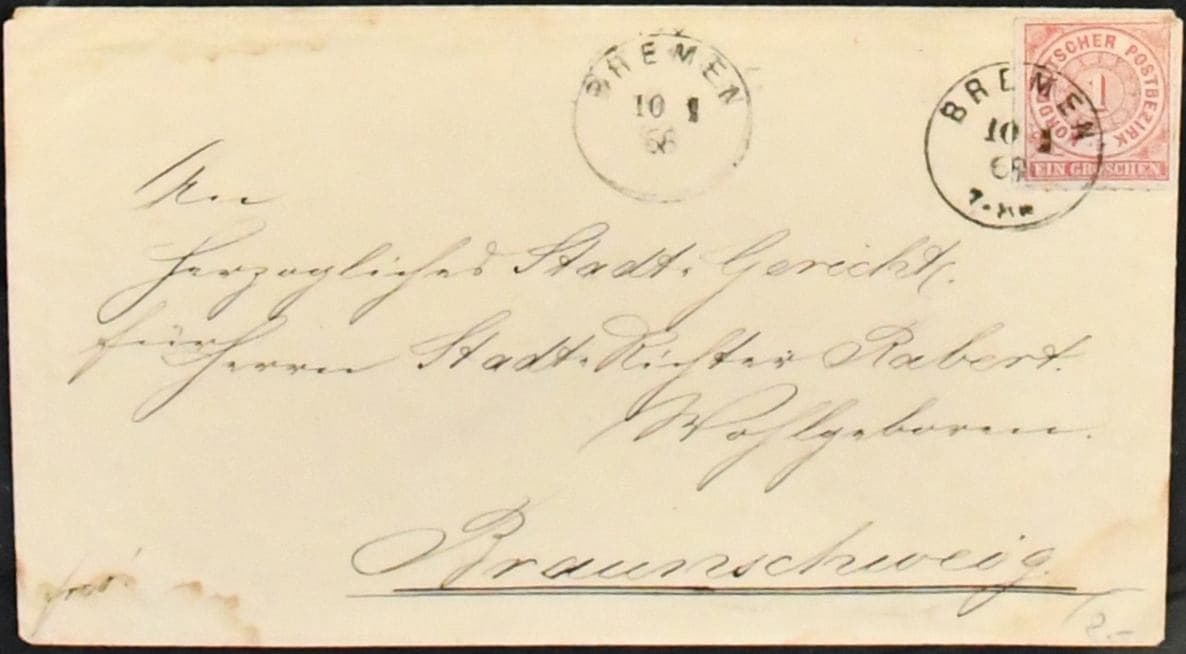 BREMEN
10 1
68
BREMEN
10 1
68
7-8
NORDDEUTSCHER POSTBEZIRK
1
EIN GROSCHEN
An
Herzogliches Stadt-Gericht.
für Herrn Stadt-Richter Rabert.
Wohlgeboren.
Braunschweig
frei